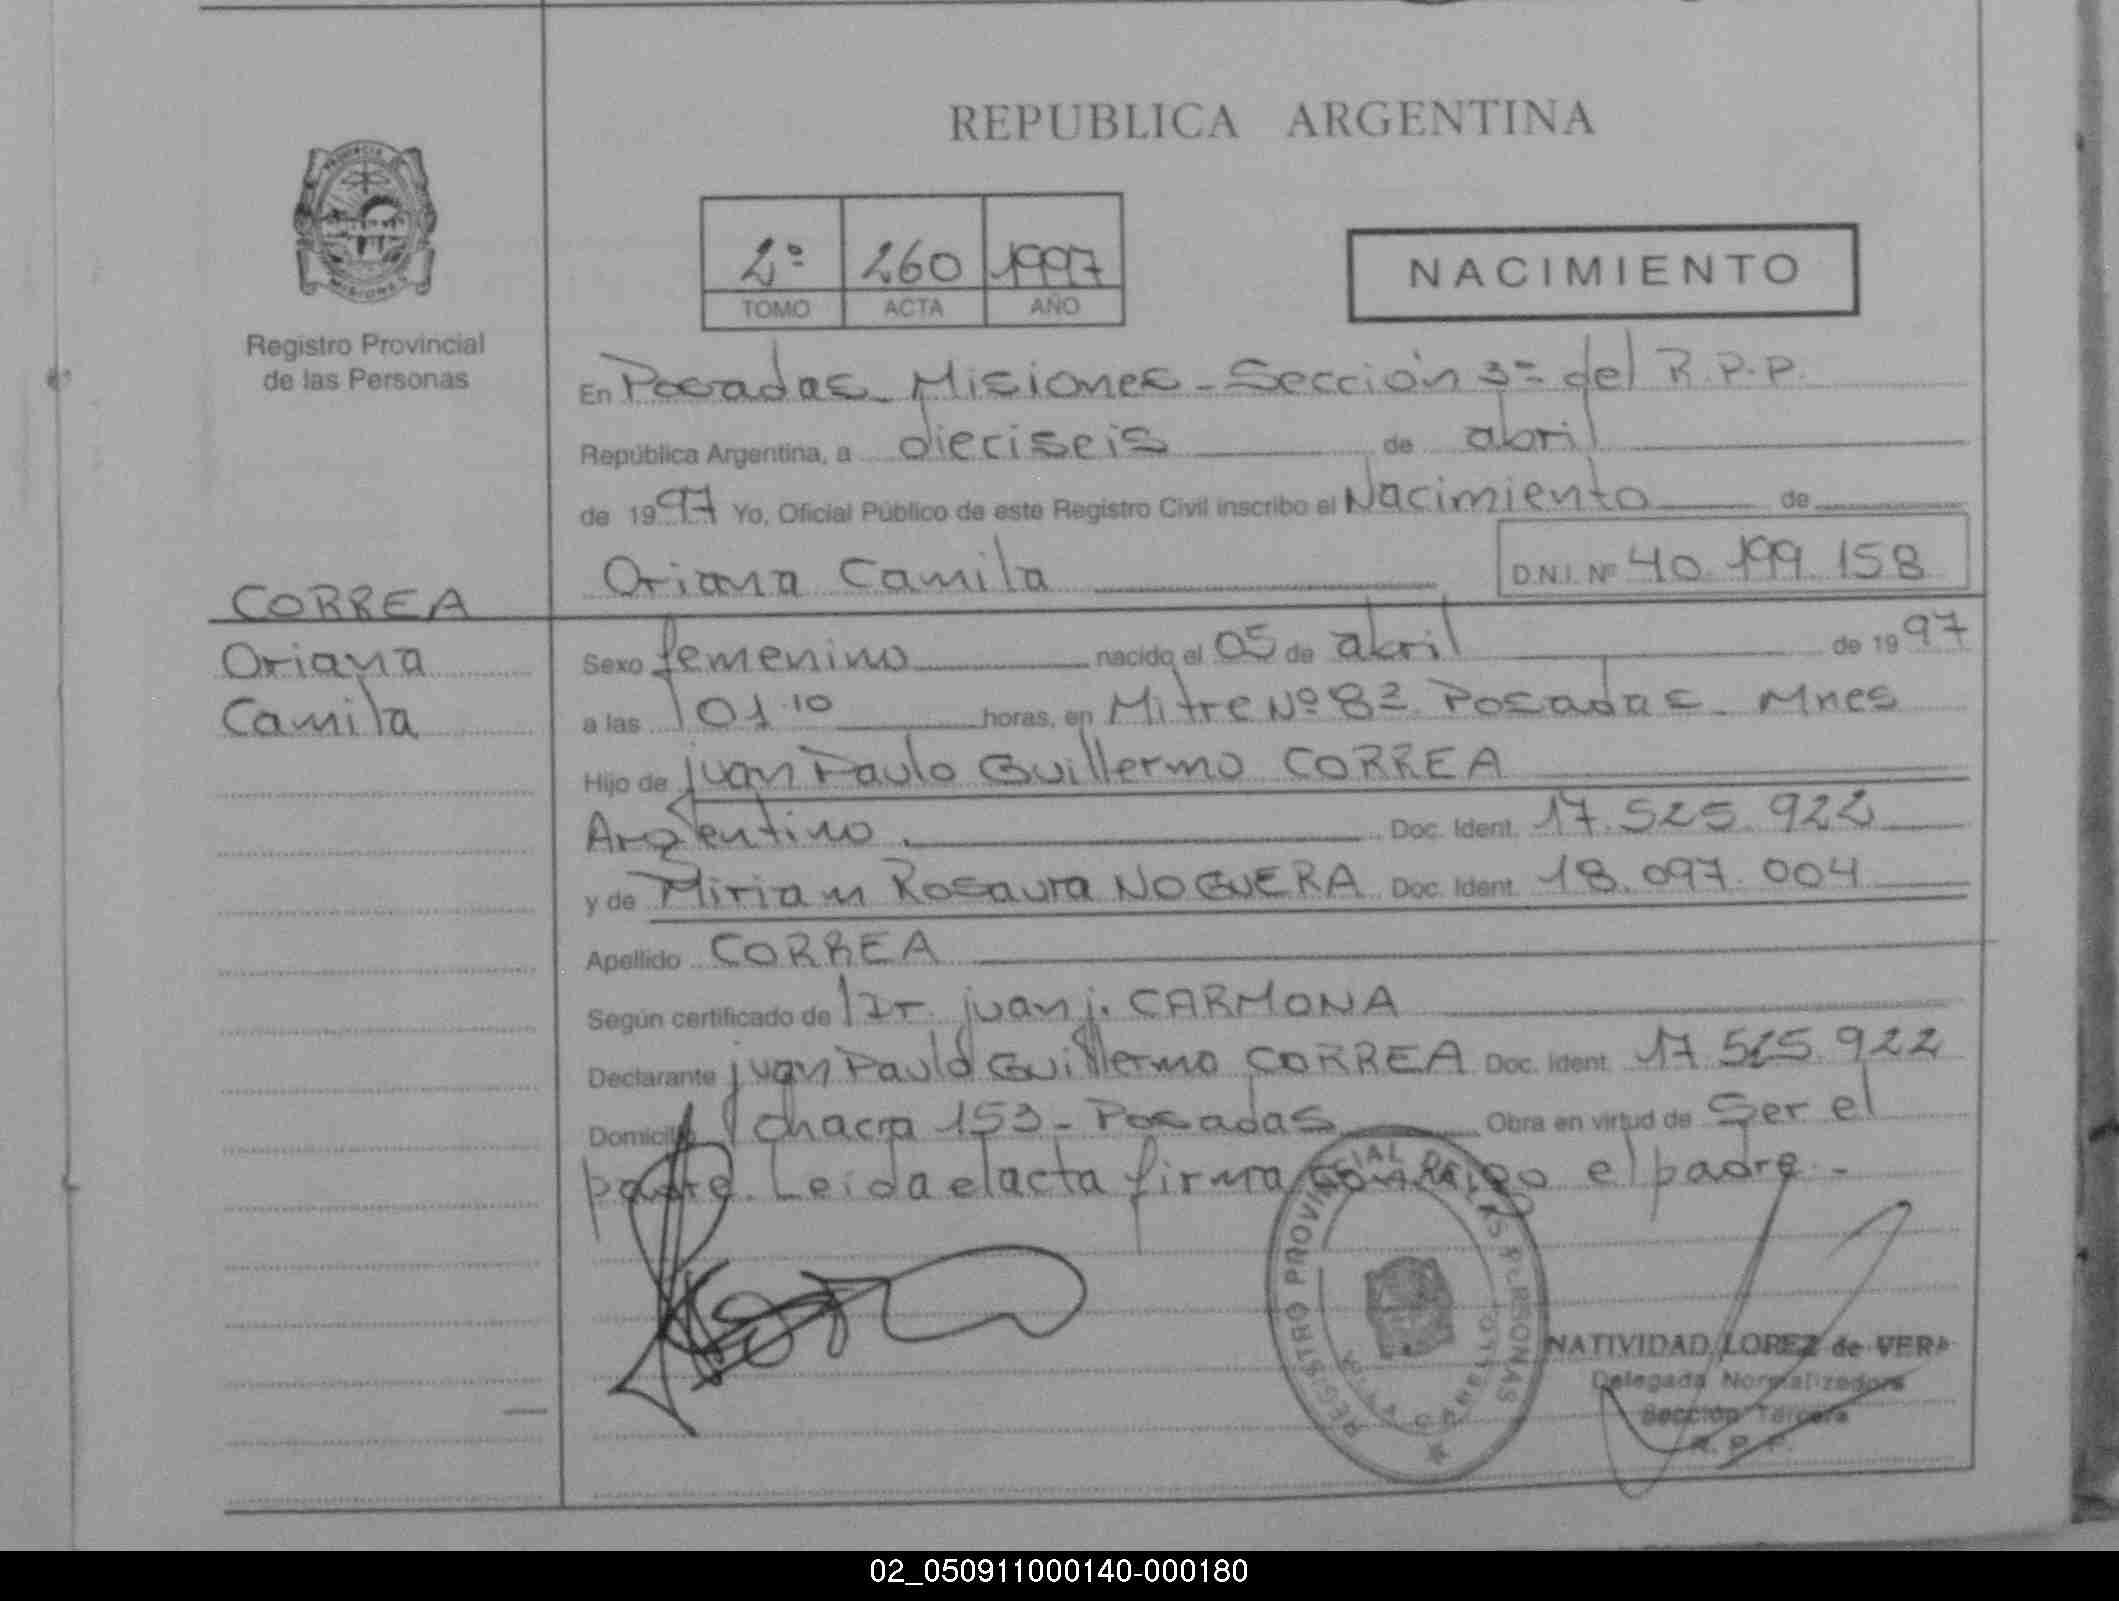 REPUBLICA ARGENTINA
2º 260 1997
TOMO ACTA AÑO
NACIMIENTO
Registro Provincial
de las Personas
En Posadas - Misiones - Sección 3= del R.P.P.
República Argentina, a dieciseis de abril
de 1997 Yo, Oficial Público de este Registro Civil inscribo el Nacimiento de
Oriana Camila D.N.I. Nº 40.199.158
CORREA
Oriana
Camila
Sexo femenino nacido el 05 de abril de 1997
a las 01.10 horas, en Mitre Nº 82 Posadas - Mnes
Hijo de juan Paulo Guillermo CORREA
Argentino. Doc. Ident. 17.525.922
y de Miriam Rosaura NOGUERA Doc. Ident. 18.097.004
Apellido CORREA
Según certificado de Dr. juan j. CARMONA
Declarante juan Paulo Guillermo CORREA Doc. Ident. 17.525.922
Domicilio chacra 153 - Posadas Obra en virtud de Ser el
padre. Leida el acta firma conmigo el padre.-
REGISTRO PROVINCIAL DE LAS PERSONAS
NATIVIDAD LOPEZ de VERA
Delegada Normalizadora
Sección Tercera
R. P. P.
02_050911000140-000180